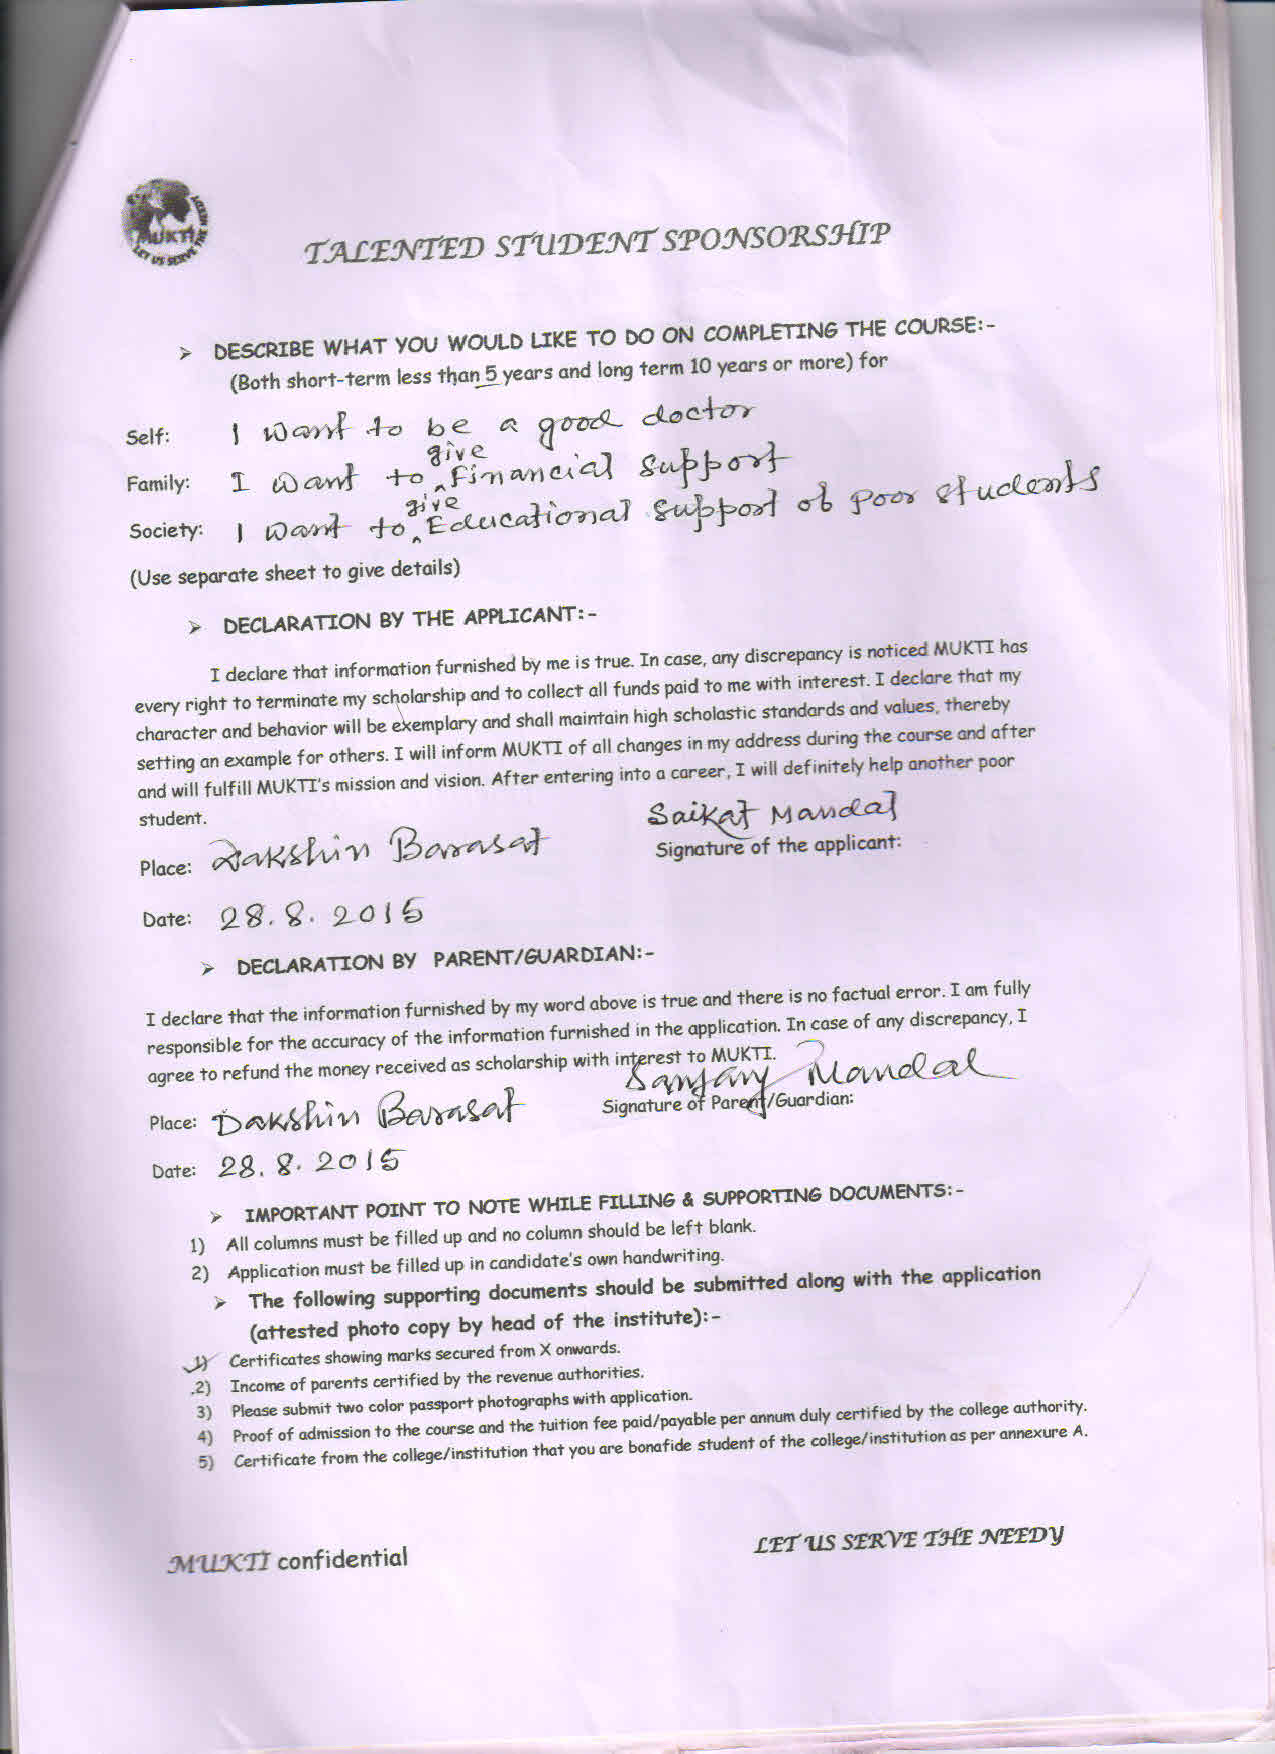 MUKTI
LET US SERVE THE NEEDY
TALENTED STUDENT SPONSORSHIP
➢ DESCRIBE WHAT YOU WOULD LIKE TO DO ON COMPLETING THE COURSE:-
(Both short-term less than 5 years and long term 10 years or more) for
Self: I want to be a good doctor
Family: I want to give financial support
Society: I want to give Educational support of poor students
(Use separate sheet to give details)
➢ DECLARATION BY THE APPLICANT:-
I declare that information furnished by me is true. In case, any discrepancy is noticed MUKTI has
every right to terminate my scholarship and to collect all funds paid to me with interest. I declare that my
character and behavior will be exemplary and shall maintain high scholastic standards and values, thereby
setting an example for others. I will inform MUKTI of all changes in my address during the course and after
and will fulfill MUKTI's mission and vision. After entering into a career, I will definitely help another poor
student.
Saikat Mandal
Place: Dakshin Barasat Signature of the applicant:
Date: 28.8.2015
➢ DECLARATION BY PARENT/GUARDIAN:-
I declare that the information furnished by my word above is true and there is no factual error. I am fully
responsible for the accuracy of the information furnished in the application. In case of any discrepancy, I
agree to refund the money received as scholarship with interest to MUKTI.
Sanjay Mandal
Place: Dakshin Barasat Signature of Parent/Guardian:
Date: 28.8.2015
➢ IMPORTANT POINT TO NOTE WHILE FILLING & SUPPORTING DOCUMENTS:-
1) All columns must be filled up and no column should be left blank.
2) Application must be filled up in candidate's own handwriting.
➢ The following supporting documents should be submitted along with the application
(attested photo copy by head of the institute):-
1) Certificates showing marks secured from X onwards.
2) Income of parents certified by the revenue authorities.
3) Please submit two color passport photographs with application.
4) Proof of admission to the course and the tuition fee paid/payable per annum duly certified by the college authority.
5) Certificate from the college/institution that you are bonafide student of the college/institution as per annexure A.
MUKTI confidential LET US SERVE THE NEEDY